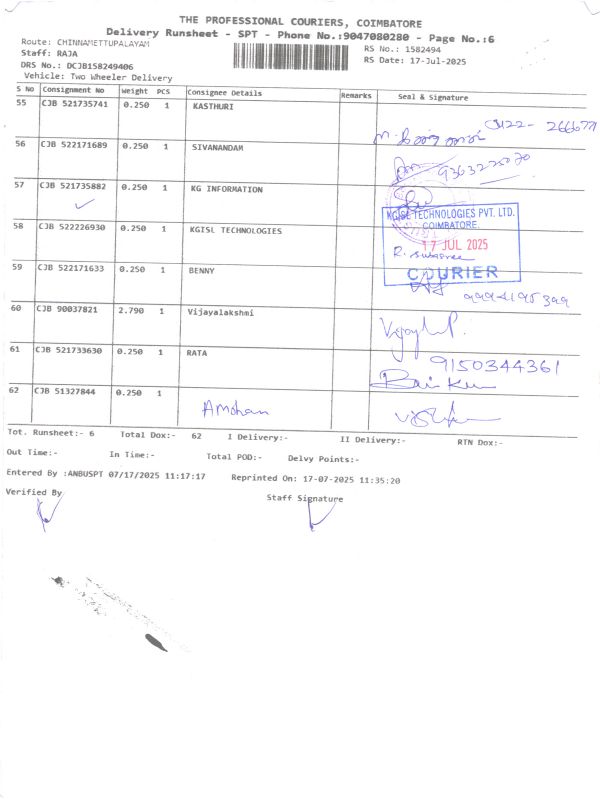 THE PROFESSIONAL COURIERS, COIMBATORE
Delivery Runsheet - SPT - Phone No.:9047080280 - Page No.:6
Route: CHINNAMETTUPALAYAM
RS No.: 1582494
Staff: RAJA
RS Date: 17-Jul-2025
DRS No.: DCJB158249406
Vehicle: Two Wheeler Delivery
S No Consignment No Weight PCS Consignee Details Remarks Seal & Signature
55 CJB 521735741 0.250 1 KASTHURI
56 CJB 522171689 0.250 1 SIVANANDAM
57 CJB 521735882 0.250 1 KG INFORMATION
KGISL TECHNOLOGIES PVT. LTD.
COIMBATORE.
58 CJB 522226930 0.250 1 KGISL TECHNOLOGIES
17 JUL 2025
COURIER
59 CJB 522171633 0.250 1 BENNY
60 CJB 90037821 2.790 1 Vijayalakshmi
61 CJB 521733630 0.250 1 RATA 9150344361
62 CJB 51327844 0.250 1 A Mohan
Tot. Runsheet:- 6 Total Dox:- 62 I Delivery:- II Delivery:- RTN Dox:-
Out Time:- In Time:- Total POD:- Delvy Points:-
Entered By :ANBUSPT 07/17/2025 11:17:17 Reprinted On: 17-07-2025 11:35:20
Verified By Staff Signature